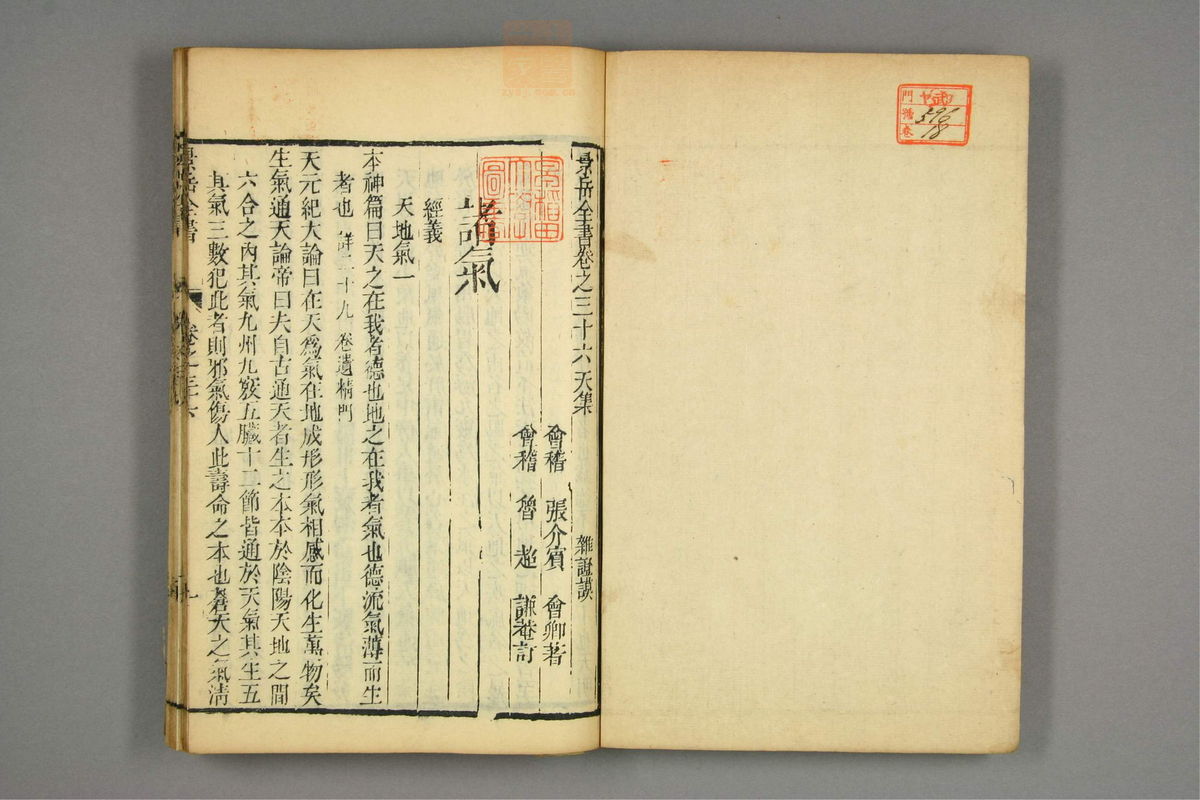 景岳全書卷之三十六天集 雜證謨
會稽 張介賓 會卿著
會稽 魯 超 謙菴訂
諸氣
經義
天地氣一
本神篇曰天之在我者德也地之在我者氣也德流氣薄而生
者也 詳二十九卷遺精門
天元紀大論曰在天為氣在地成形形氣相感而化生萬物矣
生氣通天論帝曰夫自古通天者生之本本於陰陽天地之間
六合之內其氣九州九竅五臟十二節皆通於天氣其生五
其氣三數犯此者則邪氣傷人此壽命之本也蒼天之氣清
景岳全書
卷之三十六
一
早稻田
大學
圖書
門
號 596
卷 18